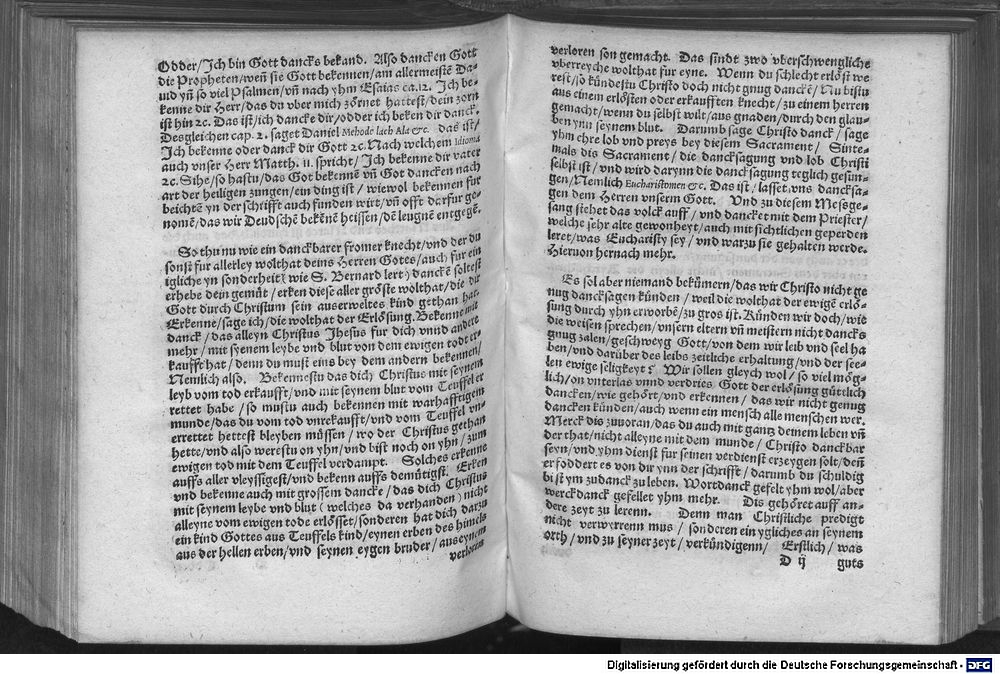 Odder/Ich bin Gott dancks bekand. Also dancken Gott
die Propheten/weñ sie Gott bekennen/am allermeistē Da-
uid yñ so viel Psalmen/vñ nach yhm Esaias ca.12. Ich be-
kenne dir Herr/das du vber mich zörnet hattest/dein zorn
ist hin ꝛc. Das ist/ich dancke dir/odder ich beken dir danck.
Desgleichen cap. 2. saget Daniel Mehode lach Ala &c. das ist/
Ich bekenne oder danck dir Gott ꝛc. Nach welchem Idioma
auch vnser Herr Matth. 11. spricht/Ich bekenne dir vater
ꝛc. Sihe/so hastu/das Got bekennē vñ Got dancken nach
art der heiligen zungen/ein ding ist/ wiewol bekennen fur
beichtē yn der schrifft auch funden wirt/vñ offt darfur ge-
nomē/das wir Deudschē bekēnē heissen/dē leugnē entgegē.
So thu nu wie ein danckbarer fromer knecht/vnd der du
sonst fur allerley wolthat deins Herren Gotes/auch fur ein
igliche yn sonderheit (wie S. Bernard lert) danckē soltest
erhebe dein gemüt/erken diese aller gröste wolthat/die dir
Gott durch Christum sein auserweltes kind gethan hat.
Erkenne/sage ich/die wolthat der Erlösung. Bekenne mit
danck/das alleyn Christus Jhesus fur dich vnnd andere
mehr/mit syenem leybe vnd blut von dem ewigen todt er-
kaufft hat/denn du must eins bey dem andern bekennen/
Nemlich also. Bekennestu das dich Christus mit seynem
leyb vom tod erkaufft/vnd mit seynem blut vom Teuffel er-
rettet habe/so mustu auch bekennen mit warhafftigem
munde/das du vom tod vnrekaufft/vnd vom Teuffel vn-
errettet hettest bleyben müssen/wo der Christus gethan
hette/vnd also werestu on yhn/vnd bist noch on yhn/zum
ewigen tod mit dem Teuffel verdampt. Solches erkenne
auffs aller vleyssigest/vnd bekenn auffs demütigst. Erken
vnd bekenne auch mit grossem dancke/das dich Christus
mit seynem leybe vnd blut (welches da verhanden) nicht
alleyne vom ewigen tode erlösset/sonderen hat dich darzu
ein kind Gottes aus Teuffels kind/eynen erben des himels
aus der hellen erben/vnd seynen eygen bruder/aus eynem
verloren
verloren son gemacht. Das sindt zwo vberschwengliche
vberreyche wolthat fur eyne. Wenn du schlecht erlöst we
rest/so kündestu Christo doch nicht gnug danckē/Nu bistu
aus einem erlösten oder erkaufften knecht/zu einem herren
gemacht/wenn du selbst wilt/aus gnaden/durch den glau-
ben ynn seynem blut. Darumb sage Christo danck/sage
yhm ehre lob vnd preys bey diesem Sacrament/ Sinte-
mals dis Sacrament/die dancksagung vnd lob Christi
selbst ist/vnd wird darynn die dancksagung teglich gesun-
gen/Nemlich Eucharistomen &c. Das ist/lasset vns dancksa-
gen dem Herren vnserm Gott. Vnd zu diesem Messge-
sang stehet das volck auff/vnd dancket mit dem Priester/
welche sehr alte gewonheyt/auch mit sichtlichen geperden
leret/was Eucharisty sey/vnd warzu sie gehalten werde.
Hieruon hernach mehr.
Es sol aber niemand bekümern/das wir Christo nicht ge
nug dancksagen künden/weil die wolthat der ewigē erlö-
sung durch yhn erworbē/zu gros ist. Künden wir doch/wie
die weisen sprechen/vnsern eltern vñ meistern nicht dancks
gnug zalen/geschweyg Gott/von dem wir leib vnd seel ha
ben/vnd darüber des leibs zeitliche erhaltung/vnd der see-
len ewige seligkeyt? Wir sollen gleych wol/so viel mög-
lich/on vnterlas vnnd verdries Gott der erlösung güttlich
dancken/wie gehört/vnd erkennen/das wir nicht genug
dancken künden/auch wenn ein mensch alle menschen wer.
Merck dis zuuoran/das du auch mit gantz deinem leben vñ
der that/nicht alleyne mit dem munde/Christo danckbar
seyn/vnd yhm dienst fur seinen verdienst erzeygen solt/deñ
er foddert es von dir ynn der schrifft/darumb du schuldig
bist ym zudanck zu leben. Wortdanck gefelt yhm wol/aber
werckdanck gefellet yhm mehr. Dis gehöret auff an-
dere zeyt zu lerenn. Denn man Christliche predigt
nicht verwerrenn mus/sonderen ein ygliches an seynem
orth/vnd zu seyner zeyt/verkündigenn/ Erstlich/was
D ij guts
Digitalisierung gefördert durch die Deutsche Forschungsgemeinschaft - DFG